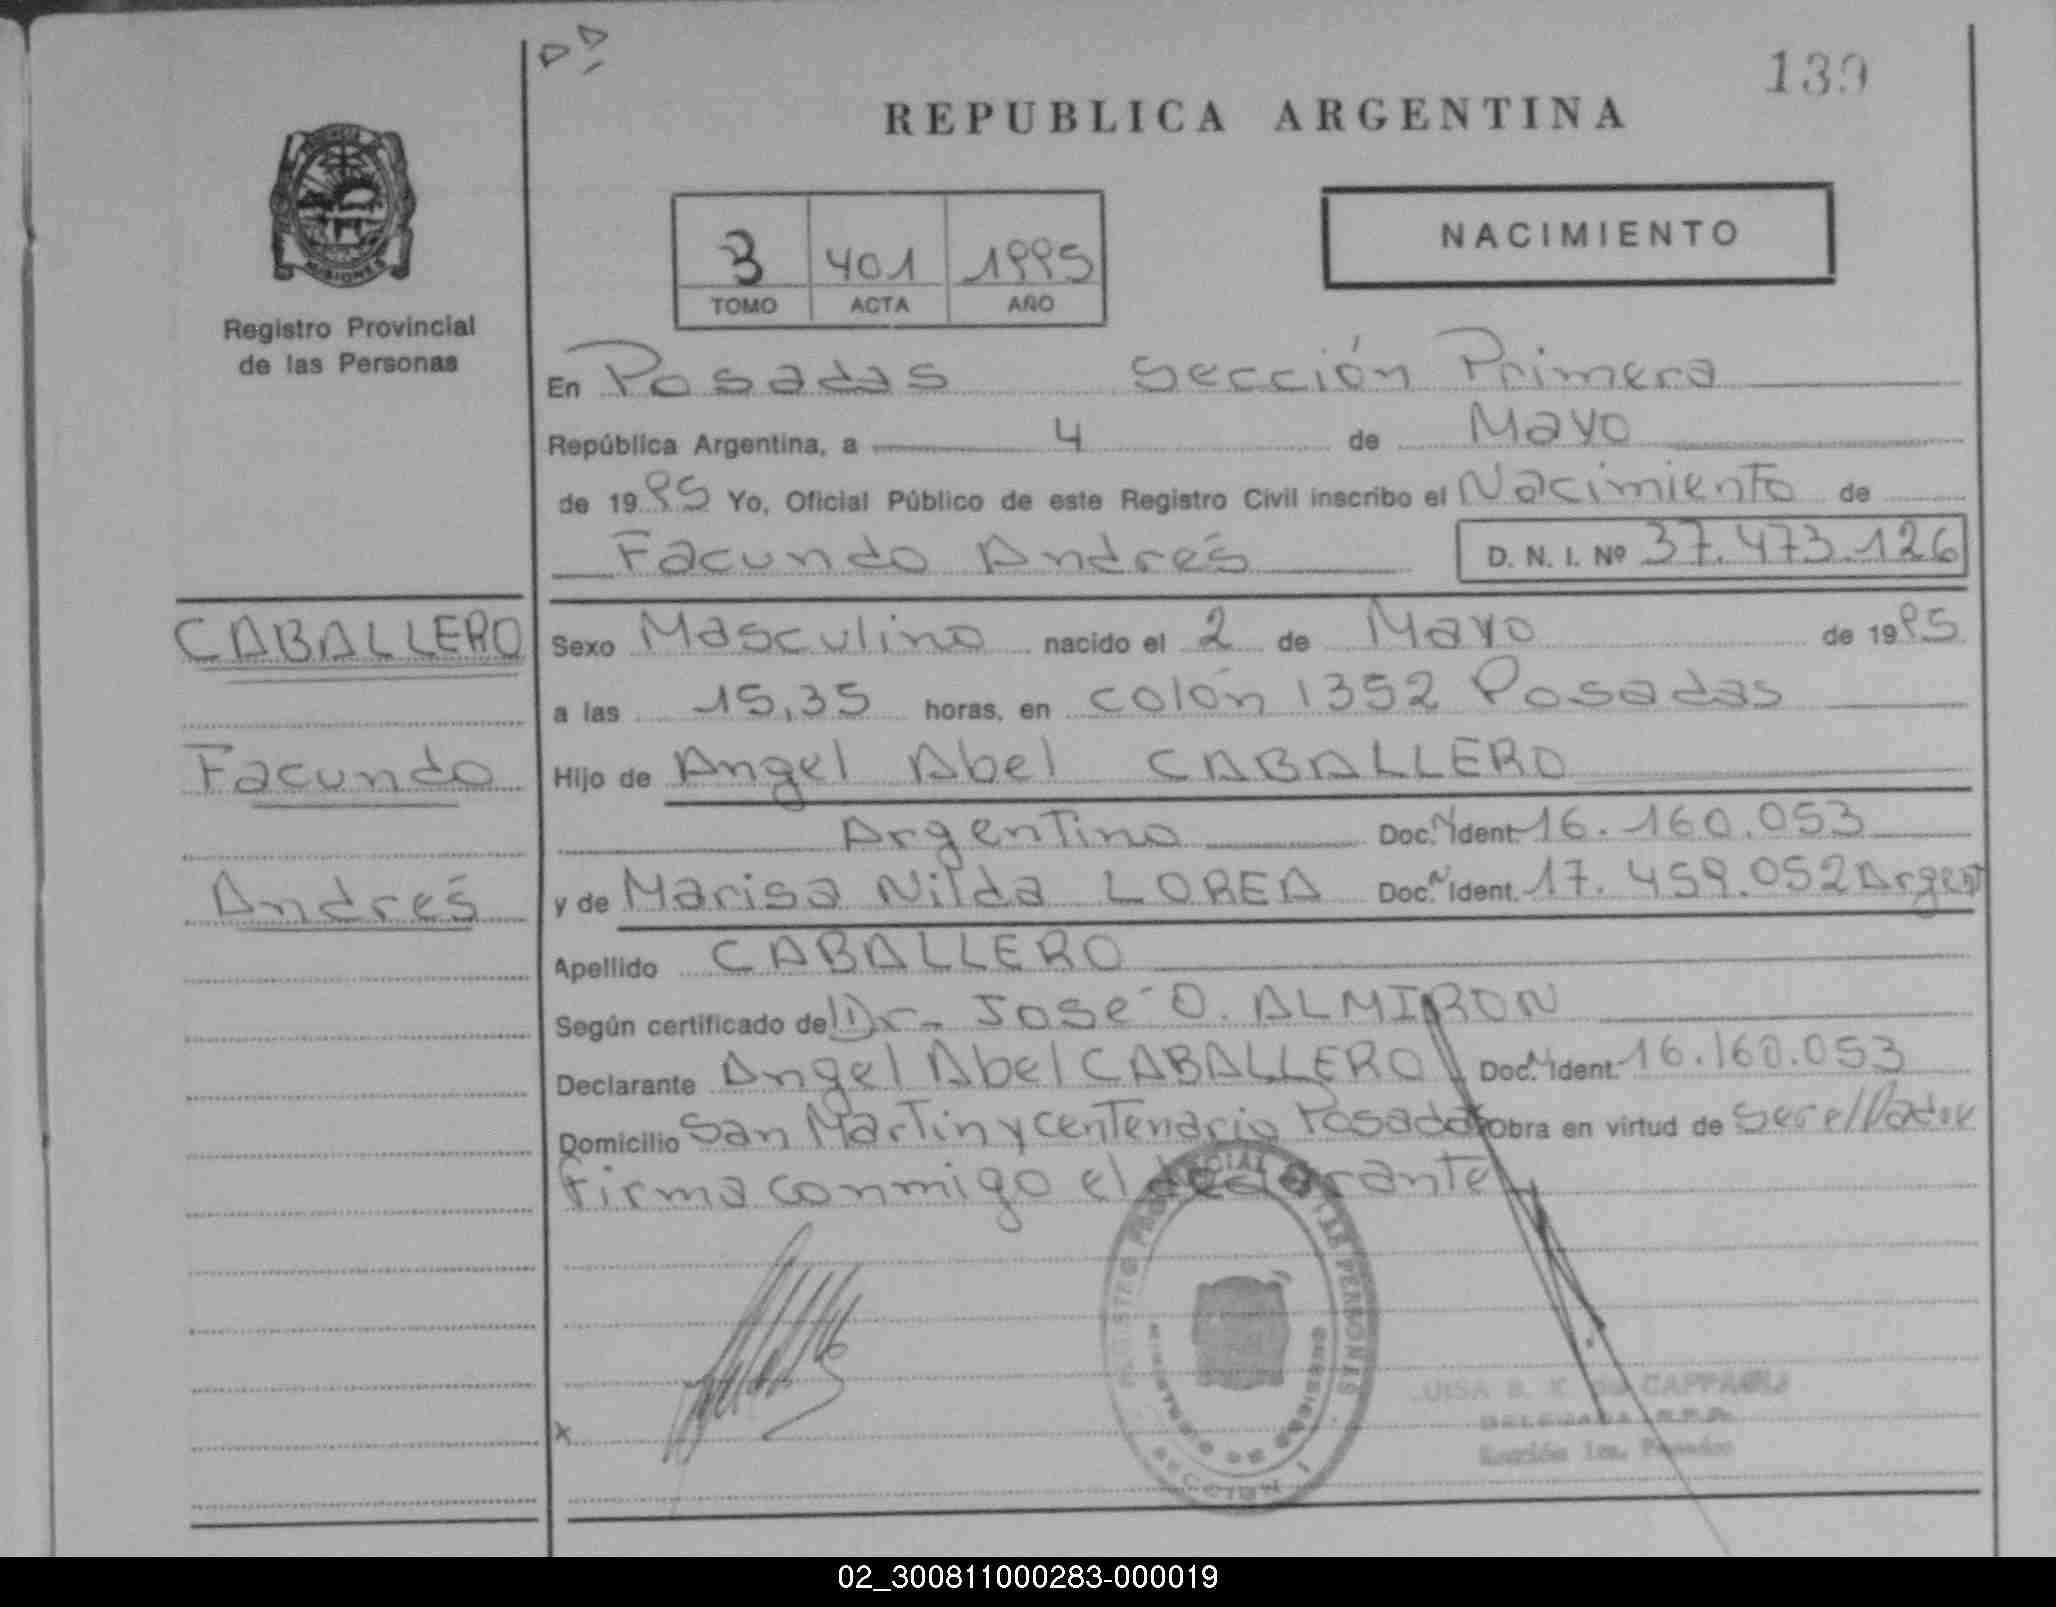 139
REPUBLICA ARGENTINA
MISIONES
Registro Provincial
de las Personas
3 401 1995
TOMO ACTA AÑO
NACIMIENTO
En Posadas Sección Primera
República Argentina, a 4 de Mayo
de 1995 Yo, Oficial Público de este Registro Civil inscribo el Nacimiento de
Facundo Andrés D. N. I. Nº 37.473.126
CABALLERO
Facundo
Andrés
Sexo Masculino nacido el 2 de Mayo de 1995
a las 15,35 horas, en colón 1352 Posadas
Hijo de Angel Abel CABALLERO
Argentino Doc. Ident. 16.160.053
y de Marisa Nilda LOREA Doc. Ident. 17.459.052 Argent
Apellido CABALLERO
Según certificado del Dr. José O. ALMIRON
Declarante Angel Abel CABALLERO Doc. Ident. 16.160.053
Domicilio San Martin y centenario Posadas Obra en virtud de ser el Padre
Firma conmigo el declarante
x
REGISTRO PROVINCIAL DE LAS PERSONAS
CAPPAGLI
Sección 1ra. Posadas
02_300811000283-000019